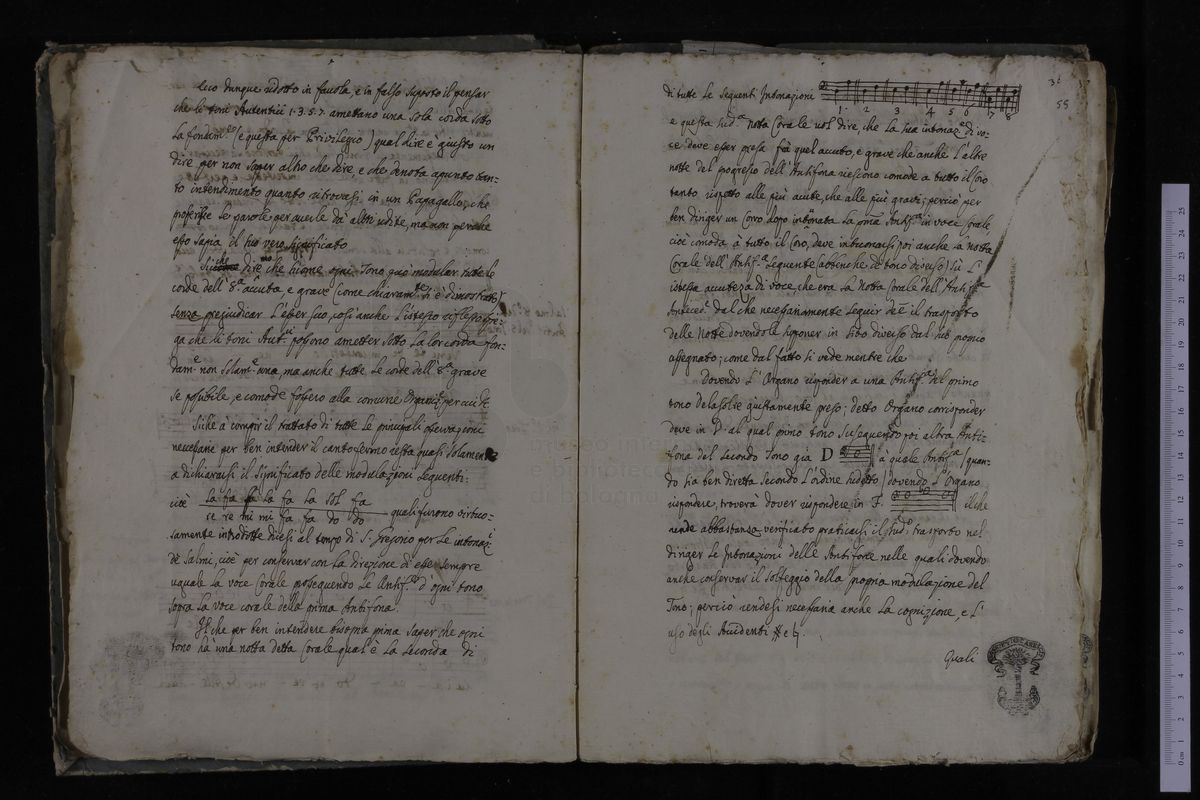 Ecco dunque ridotto in favola, e in falso supposto il pensar
che li toni Autentici 1. 3. 5. 7. amettano una sola corda sotto
la fondam.le (e questa per Privilegio) qual dire è giusto un
dire per non saper altro che dire, e che denota apunto tan=
to intendimento quanto ritrovasi in un Papagallo, che
proferisce le parole, per averle da altri udite, ma non perche
esso sapia il suo vero significato
Sicche diremo che siccome ogni Tono può modular tutte le
corde dell' 8.a accuta e grave (come chiaram.te si è dimostrato)
senza prejudicar l'esser suo, così anche l'istesso
ga che li toni Aut.ci possono ametter sotto la lor corda fon=
dam.e non solam.e una, ma anche tutte le corde dell' 8.a grave
se possibile, e comode fossero alla comune
Siche à compir il trattato di tutte le principali osservazioni
necessarie per ben intender il canto fermo resta quasi solamente
a dichiararsi il significato delle modulazioni seguenti:
cioè la fa la fa la sol fa
re re mi mi fa fa do do quali furono virtuo=
samente introdotte diesi al tempo di S. Gregorio per le intonaz.i
dè Salmi, cioè per conservar con la direzione di esse sempre
uguale la voce Corale prosseguendo le Antif.e d'ogni tono
sopra la voce corale della prima Antifona.
Il che per ben intendere bisogna prima saper che ogni
tono ha una notta detta Corale qual'è la seconda di
36
55
di tutte le seguenti Intonazioni
1 2 3 4 5 6 7 8
e questa sud.a notta Corale vol dire, che la sua intonaz.e di vo=
ce deve esser presa frà quel accuto, e grave che anche l'altre
notte del progresso dell'Antifona riescono comode a tutto il Coro
tanto rispetto alle più acute, che alle più gravi; perciò per
ben diriger un Coro dopo intonata la pma Antif.a in voce Corale,
cioè comoda à tutto il Coro, deve intuonarsi poi anche la notta
Corale dell'Antif.a seguente (abbenche di tono diverso) sù l'
istessa accutezza di voce, che era la notta Corale dell'Antif.a
Anteced.e dal che necessariamente seguir deè il trasporto
delle Notte dovendole supponer in sito diverso dal suo proprio
assegnato; come dal fatto si vede mentre che
Dovendo l'Organo risponder a una Antif.a del primo
tono delasolre giustamente preso; detto Organo corrisponder
deve in D. al qual primo tono susseguendo poi altra Anti=
fona del secondo Tono gia D a quale Antif.a (quan=
do sia ben diretta secondo l'ordine sudetto) dovendo l'Organo
rispondere, troverà dover rispondere in F. il che
rende abbastanza verificato praticarsi il sud.o trasporto nel
diriger le Intonazioni delle Antifone nelle quali dovendo
anche conservar il solfeggio della propria modulazione del
Tono; perciò rendesi necessaria anche la cognizione, e l'
uso degli Accidenti # e ♮.
Quali